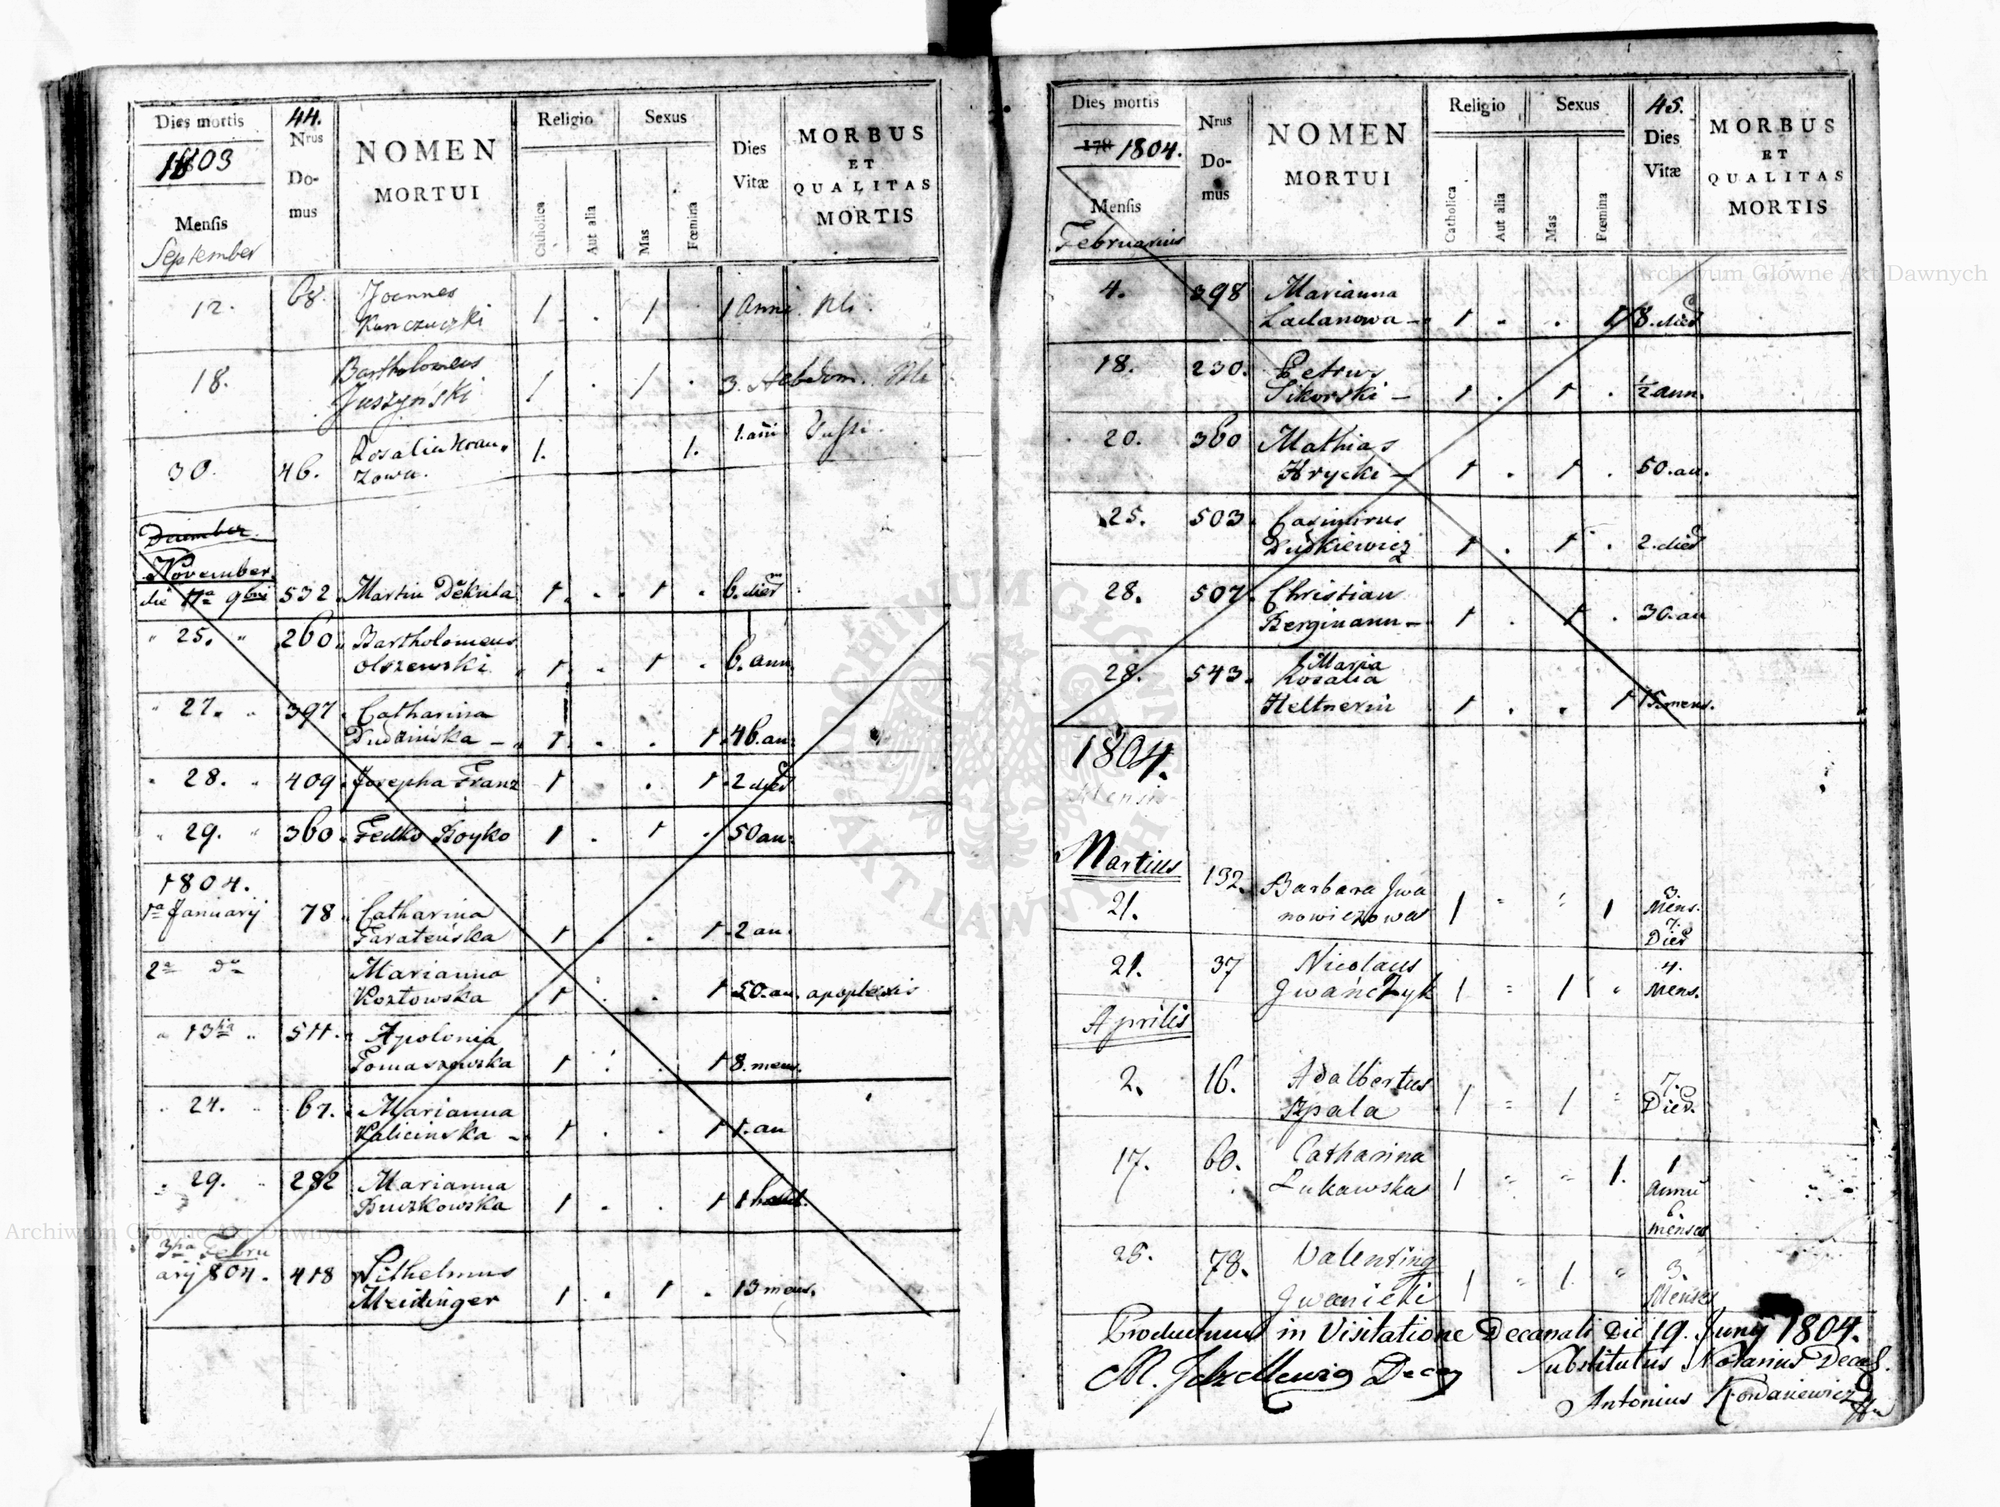 Dies mortis
1803
Mensis
September
44.
Nrus
Do-
mus
NOMEN
MORTUI
Religio
Catholica
Aut alia
Sexus
Mas
Fœmina
Dies
Vitæ
MORBUS
ET
QUALITAS
MORTIS
12. 68. Joannes
1 . 1 1 Anni
18. Bartholomeus
Juszyński 1 . 1 . 3. Hebdom.
30. 46. Rosalia
zowa. 1. 1. 1. añi
December
November
die 11a 9bris 532. Martin Dekuła 1 . . 1 . 6. dier
" 25. " 260. Bartholomeus
Olszewski 1 . 1 . 6. ann
" 27. " 397. Catharina
Dudzińska – 1 . . 1 46. an:
" 28. " 409. Josepha Franz 1 . . 1 2 dier
" 29. " 360. Fedko Boyko 1 . 1 . 50 an:
1804.
1a Januarij 78. Catharina
Tarateńska 1 . . 1 2 an.
2a do Marianna
Kozłowska 1 . . 1 50. an. apoplexis
" 13tia " 511. Apolonia
Tomaszewska 1 . . 1 8. mens.
" 24. " 67. Marianna
Kalicinska – 1 . . 1 1. an
" 29. " 282 Marianna
Buczkowska 1 . . 1 1
3tia Febru
arij 804. 418 Wilhelmus
Meidinger 1 . 1 . 13 mens.
Dies mortis
178 1804.
Mensis
Februarius
Nrus
Do-
mus
NOMEN
MORTUI
Religio
Catholica
Aut alia
Sexus
Mas
Fœmina
45.
Dies
Vitæ
MORBUS
ET
QUALITAS
MORTIS
4. 398 Marianna
Ladanowa – 1 . . 1 8. dier
18. 230. Petrus
Sikorski – 1 . 1 . ½ ann.
20. 360 Mathias
Hrycki – 1 . 1 . 50. an.
25. 503. Casimirus
Dutkiewicz 1 . 1 . 2. dier
28. 507. Christian
Bergmann – 1 . 1 . 30. an
28. 543. Maria
Rosalia
Heltnerin 1 . . 1 15 mens.
1804.
Mensis
Martius
21. 132. Barbara Jwa
nowiczowa 1 " " 1 3.
Mens.
7.
Dier
21. 37 Nicolaus
Jwańczyk 1 " 1 " 4.
Mens.
Aprilis
2. 16. Adalbertus
Szpala 1 " 1 " 7.
Dier.
17. 60. Catharina
Łukawska 1 " " 1. 1
Anni
6.
menses
25. 78. Valentinq
Jwanicki 1 " 1. " 3.
Menses
Productum in Visitatione Decanali Die 19. Juny 1804.
Substitutus Notarius Decal.
M. Decq
Antonius Kowaniewicz
Archiwum Główne Akt Dawnych
Archiwum Główne Akt Dawnych
ARCHIWUM GŁÓWNE
AKT DAWNYCH